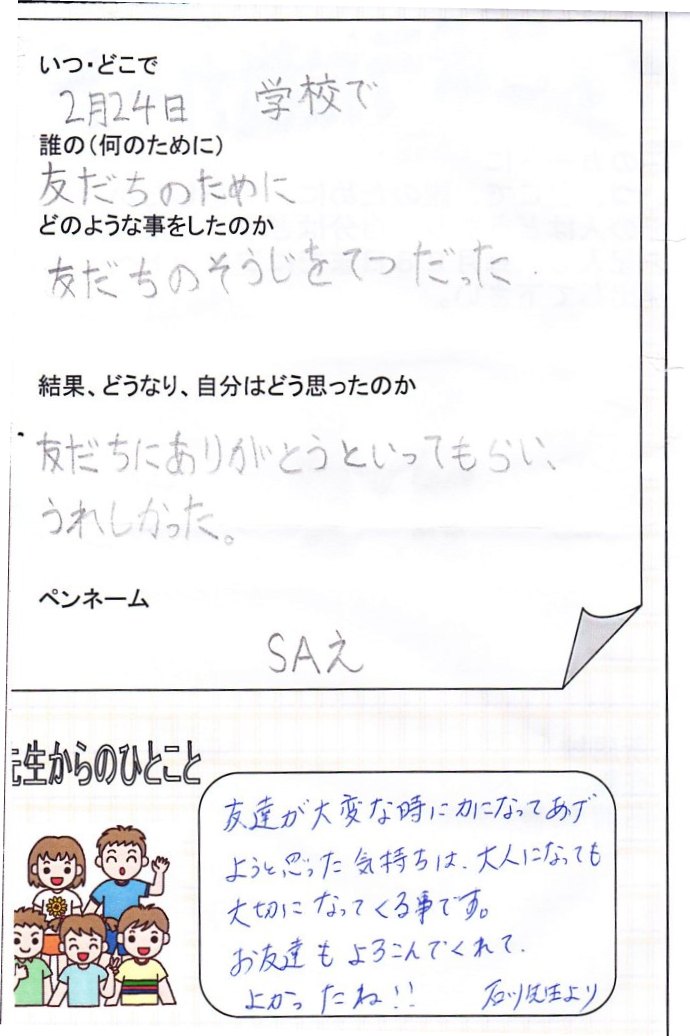 いつ・どこで
2月24日 学校で
誰の(何のために)
友だちのために
どのような事をしたのか
友だちのそうじをてつだった
結果、どうなり、自分はどう思ったのか
友だちにありがとうといってもらい、
うれしかった。
ペンネーム
SAえ
先生からのひとこと
友達が大変な時に力になってあげ
ようと思った気持ちは、大人になっても
大切になってくる事です。
お友達もよろこんでくれて、
よかったね!!
石川先生より